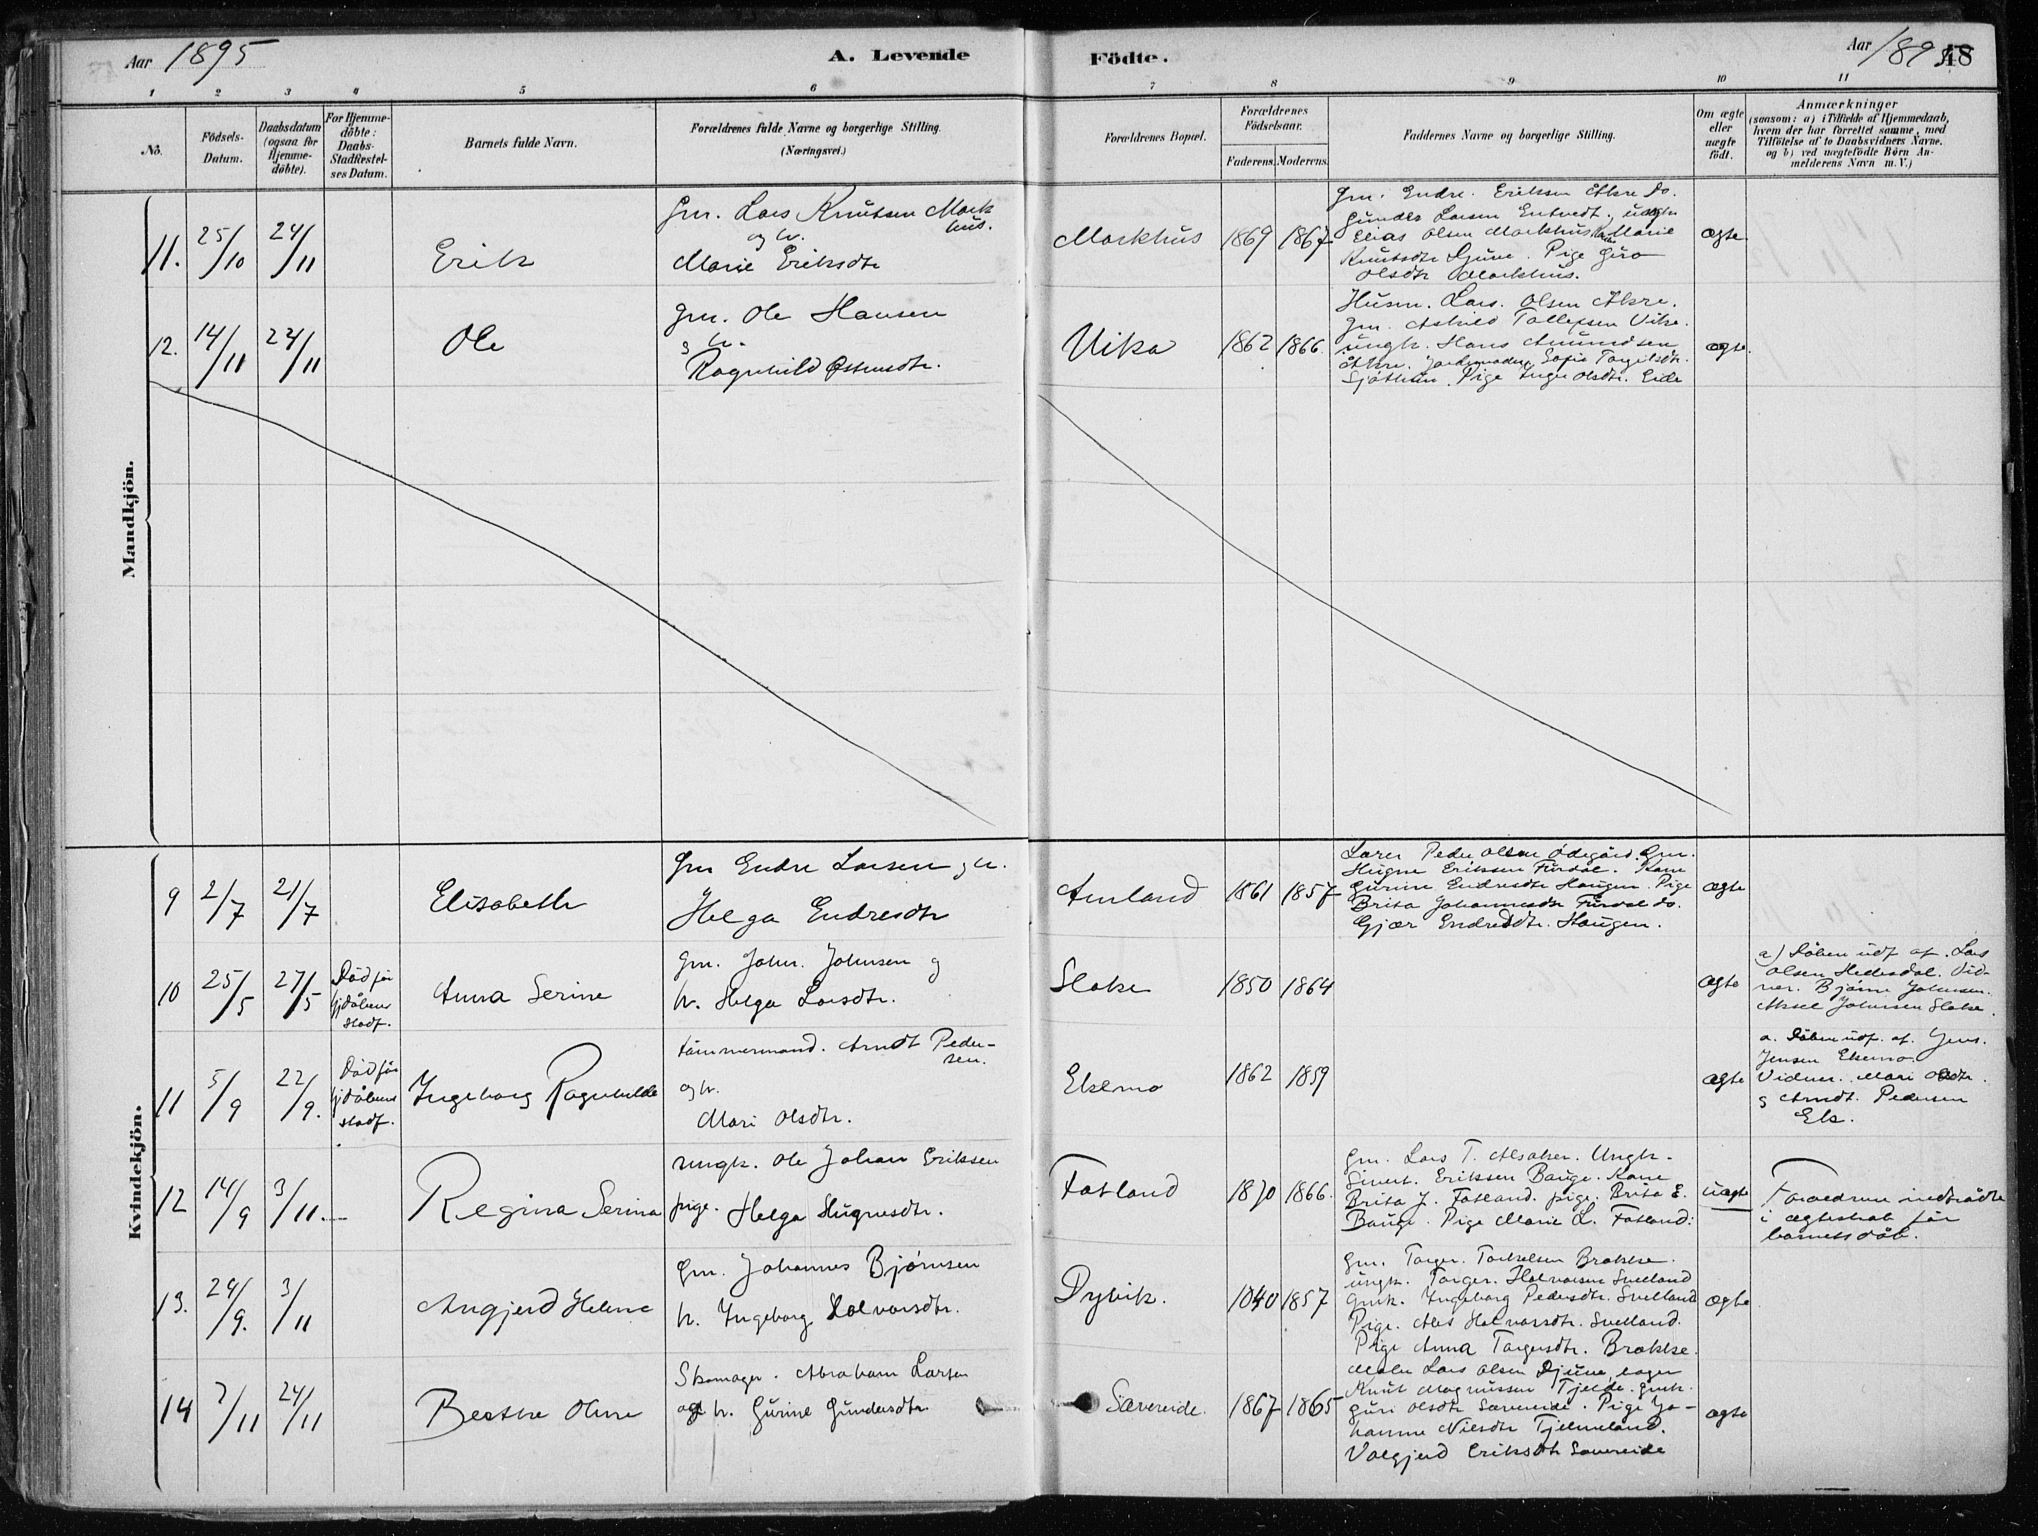 Aar 1895
A. Levende
Födte.
Aar 1895
48
1 2 3 4 5 6 7 8 9 10 11
No.
Födsels-
Datum.
Daabsdatum
(ogsaa for
Hjemme-
döbte).
For Hjemme-
döbte:
Daabs-
Stadfæstel-
ses Datum.
Barnets fulde Navn.
Forældrenes fulde Navne og borgerlige Stilling.
(Næringsvei.)
Forældrenes Bopæl.
Forældrenes
Födselsaar.
Faderens. Moderens.
Faddernes Navne og borgerlige Stilling.
Om ægte
eller
uægte
födt.
Anmærkninger
(saasom: a) i Tilfælde af Hjemmedaab,
hvem der har forrettet samme, med
Tilföielse af to Daabsvidners Navne.
og b) ved uægtefödte Börn An-
melderens Navn m. V.)
Mandkjön.
11. 25/10 24/11
Erik
Gm. Lars Knutsen Mark
hus.
og h.
Marie Eriksdtr
Markhus
1869 1867
Gm. Endre Eriksen Åkre do.
Gunder Larsen Entvedt, ungk.
Elias Olsen Markhus Marie
Knutsdtr Djune. Pige Giro
Olsdtr Markhus.
ægte
12. 14/11 24/11
Ole
Gm. Ole Hansen
g h.
Ragnhild Østensdtr.
Vika
1862 1866.
Husm. Lars Olsen Åkre.
Gm. Askild Tollefsen Vika.
ungk. Hans Amundsen
Åkre. Jordemoder Sofie Torgilsdtr.
Sjøthun. Pige Inger Olsdtr. Eide
ægte.
Kvindekjön.
9 2/7 21/7
Elisabeth
Gm Endre Larsen g h.
Helga Endresdtr
Amland
1861 1857
Lærer Peder Olsen Ødegård. Gm.
Hugne Eriksen Furdal. Kone
Gurine Endresdtr Haugen. Pige
Brita Johannesdtr Furdal do.
Gjær Endresdtr. Haugen.
ægte
10 25/5 27/5
Død før
hj.dåbens
stadf.
Anna Serine
Gm. John Johnsen g
h. Helga Larsdtr.
Slåke
1850 1864
ægte
a) Dåben udf af. Lars
Olsen Hellesdal. Vid-
ner. Bjørne Johnsen.
Aksel Johnsen Slåke.
11 5/9 22/9.
Død før
hj.dåbens
stadf.
Ingeborg Ragnhilde
tømmermand. Arndt Peder-
sen.
og h.
Mari Olsdtr.
Ekemo
1862 1859
ægte
a. Dåben udf. af. Jens.
Jensen Ekemo.
Vidner. Mari Olsdtr.
g Arndt. Pedersen
Ek.
12 14/9 3/11.
Regina Serina
Ungk. Ole Johan Eriksen
pige. Helga Hugnesdtr.
Fatland
1870 1866.
Gm. Lars T. Alsaker. Ungk.
Sivert. Eriksen Bauge. Kone
Brita J. Fatland. pige. Brita E.
Bauge. Pige Marie L. Fatland.
uægte
Foræedrene indtrådte
i ægteskab før
barnets dåb.
13. 24/9. 3/11
Angjerd Helene
Gm. Johannes Bjørnsen
h. Ingeborg Halvorsdtr.
Dybvik.
1840 1857
Gm. Torger. Torkelsen Brakke.
ungk. Torger. Halvorsen Svelland
Gmk. Ingeborg Pedersdtr. Svelland
Pige. Ales Halvorsdtr. Svelland.
Pige Anna Torgersdtr. Brakke.
ægte
14 2/11 24/11
Berthe Oline
Skomager. Abraham Larsen
og h. Gurine Gundersdtr
Sævereide.
1867 1865
Maler Lars Olsen Djune,
Knut Magnussen Tjelde. Gmk.
Guri Olsdtr Sævereide. Pige Jo-
hanne Nilsdtr Tjelmeland.
Valgjerd Eriksdtr Sævereide
ægte